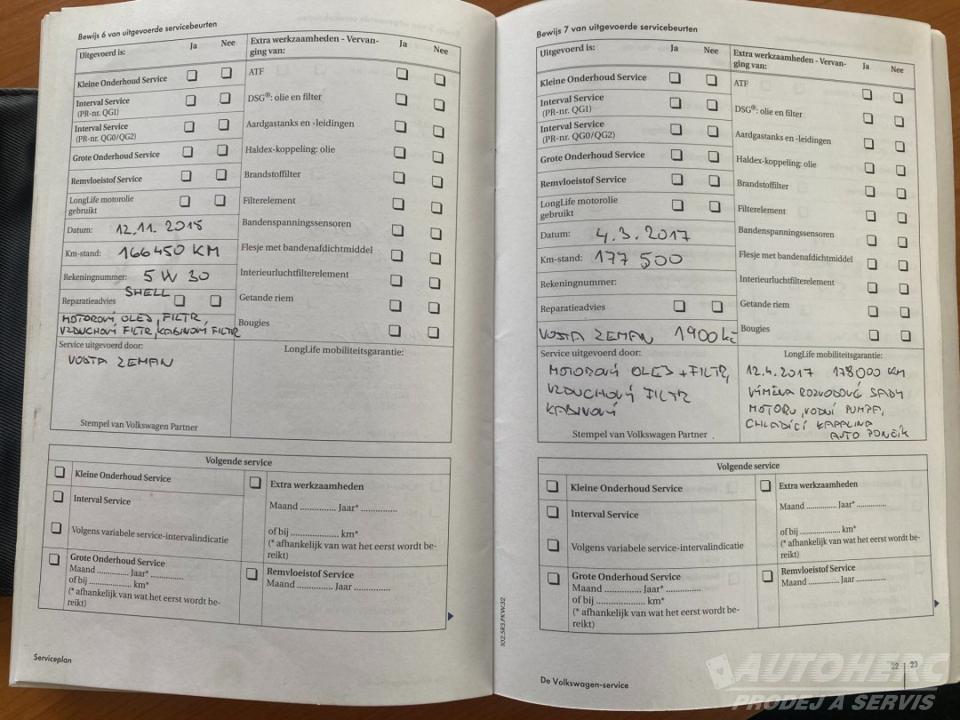 Bewijs 6 van uitgevoerde servicebeurten
Uitgevoerd is:
Ja
Nee
Extra werkzaamheden - Vervan-
ging van:
Ja
Nee
Kleine Onderhoud Service
Interval Service
(PR-nr. QG1)
Interval Service
(PR-nr. QG0/QG2)
Grote Onderhoud Service
Remvloeistof Service
LongLife motorolie
gebruikt
Datum: 12.11.2015
Km-stand: 166450 KM
Rekeningnummer: 5W30
SHELL
Reparatieadvies
MOTOROVÝ OLEJ, FILTR,
VZDUCHOVÝ FILTR, KABINOVÝ FILTR
Service uitgevoerd door:
VOJTA ZEMAN
Stempel van Volkswagen Partner
ATF
DSG®: olie en filter
Aardgastanks en -leidingen
Haldex-koppeling: olie
Brandstoffilter
Filterelement
Bandenspanningssensoren
Flesje met bandenafdichtmiddel
Interieurluchtfilterelement
Getande riem
Bougies
LongLife mobiliteitsgarantie:
Volgende service
Kleine Onderhoud Service
Interval Service
Volgens variabele service-intervalindicatie
Grote Onderhoud Service
Maand ............. Jaar* .............
of bij ..................... km*
(* afhankelijk van wat het eerst wordt be-
reikt)
Extra werkzaamheden
Maand .............. Jaar* ..............
of bij ..................... km*
(* afhankelijk van wat het eerst wordt be-
reikt)
Remvloeistof Service
Maand .............. Jaar ..............
Serviceplan
Bewijs 7 van uitgevoerde servicebeurten
Uitgevoerd is:
Ja
Nee
Extra werkzaamheden - Vervan-
ging van:
Ja
Nee
Kleine Onderhoud Service
Interval Service
(PR-nr. QG1)
Interval Service
(PR-nr. QG0/QG2)
Grote Onderhoud Service
Remvloeistof Service
LongLife motorolie
gebruikt
Datum: 4.3.2017
Km-stand: 177 500
Rekeningnummer:
Reparatieadvies
VOJTA ZEMAN 1900 Kč
Service uitgevoerd door:
MOTOROVÝ OLEJ + FILTR,
VZDUCHOVÝ FILTR
KABINOVÝ
Stempel van Volkswagen Partner
ATF
DSG®: olie en filter
Aardgastanks en -leidingen
Haldex-koppeling: olie
Brandstoffilter
Filterelement
Bandenspanningssensoren
Flesje met bandenafdichtmiddel
Interieurluchtfilterelement
Getande riem
Bougies
LongLife mobiliteitsgarantie:
12.4.2017 178000 KM
VÝMĚNA ROZVODOVÉ SADY
MOTORU, VODNÍ PUMPA,
CHLADÍCÍ KAPALINA
AUTO
Volgende service
Kleine Onderhoud Service
Interval Service
Volgens variabele service-intervalindicatie
Grote Onderhoud Service
Maand ............. Jaar* .............
of bij ..................... km*
(* afhankelijk van wat het eerst wordt be-
reikt)
Extra werkzaamheden
Maand .............. Jaar* ..............
of bij ..................... km*
(* afhankelijk van wat het eerst wordt be-
reikt)
Remvloeistof Service
Maand .............. Jaar ..............
102.5R3.PKW.32
De Volkswagen-service
22 23
AUTOHERC
PRODEJ A SERVIS